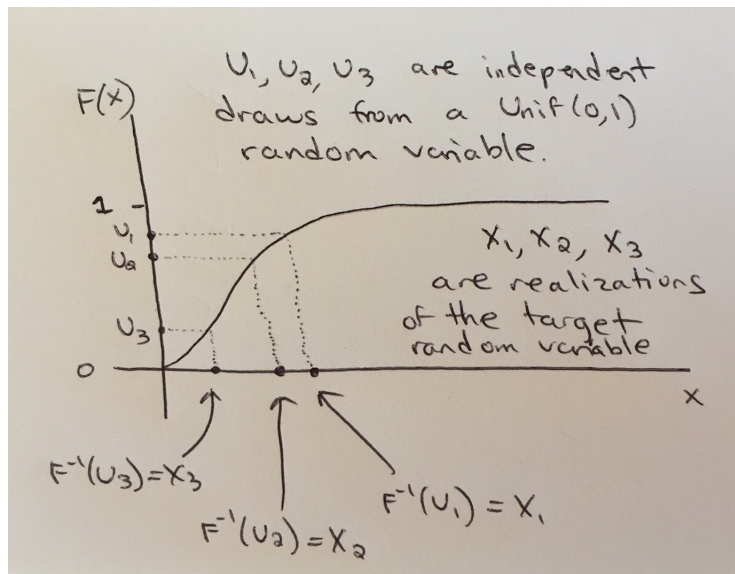 U₁, U₂, U₃ are independent
draws from a Unif(0,1)
random variable.
F(x)
1
U₁
U₂
U₃
0
X₁, X₂, X₃
are realizations
of the target
random variable
x
F⁻¹(U₃)=X₃
F⁻¹(U₂)=X₂
F⁻¹(U₁) = X₁